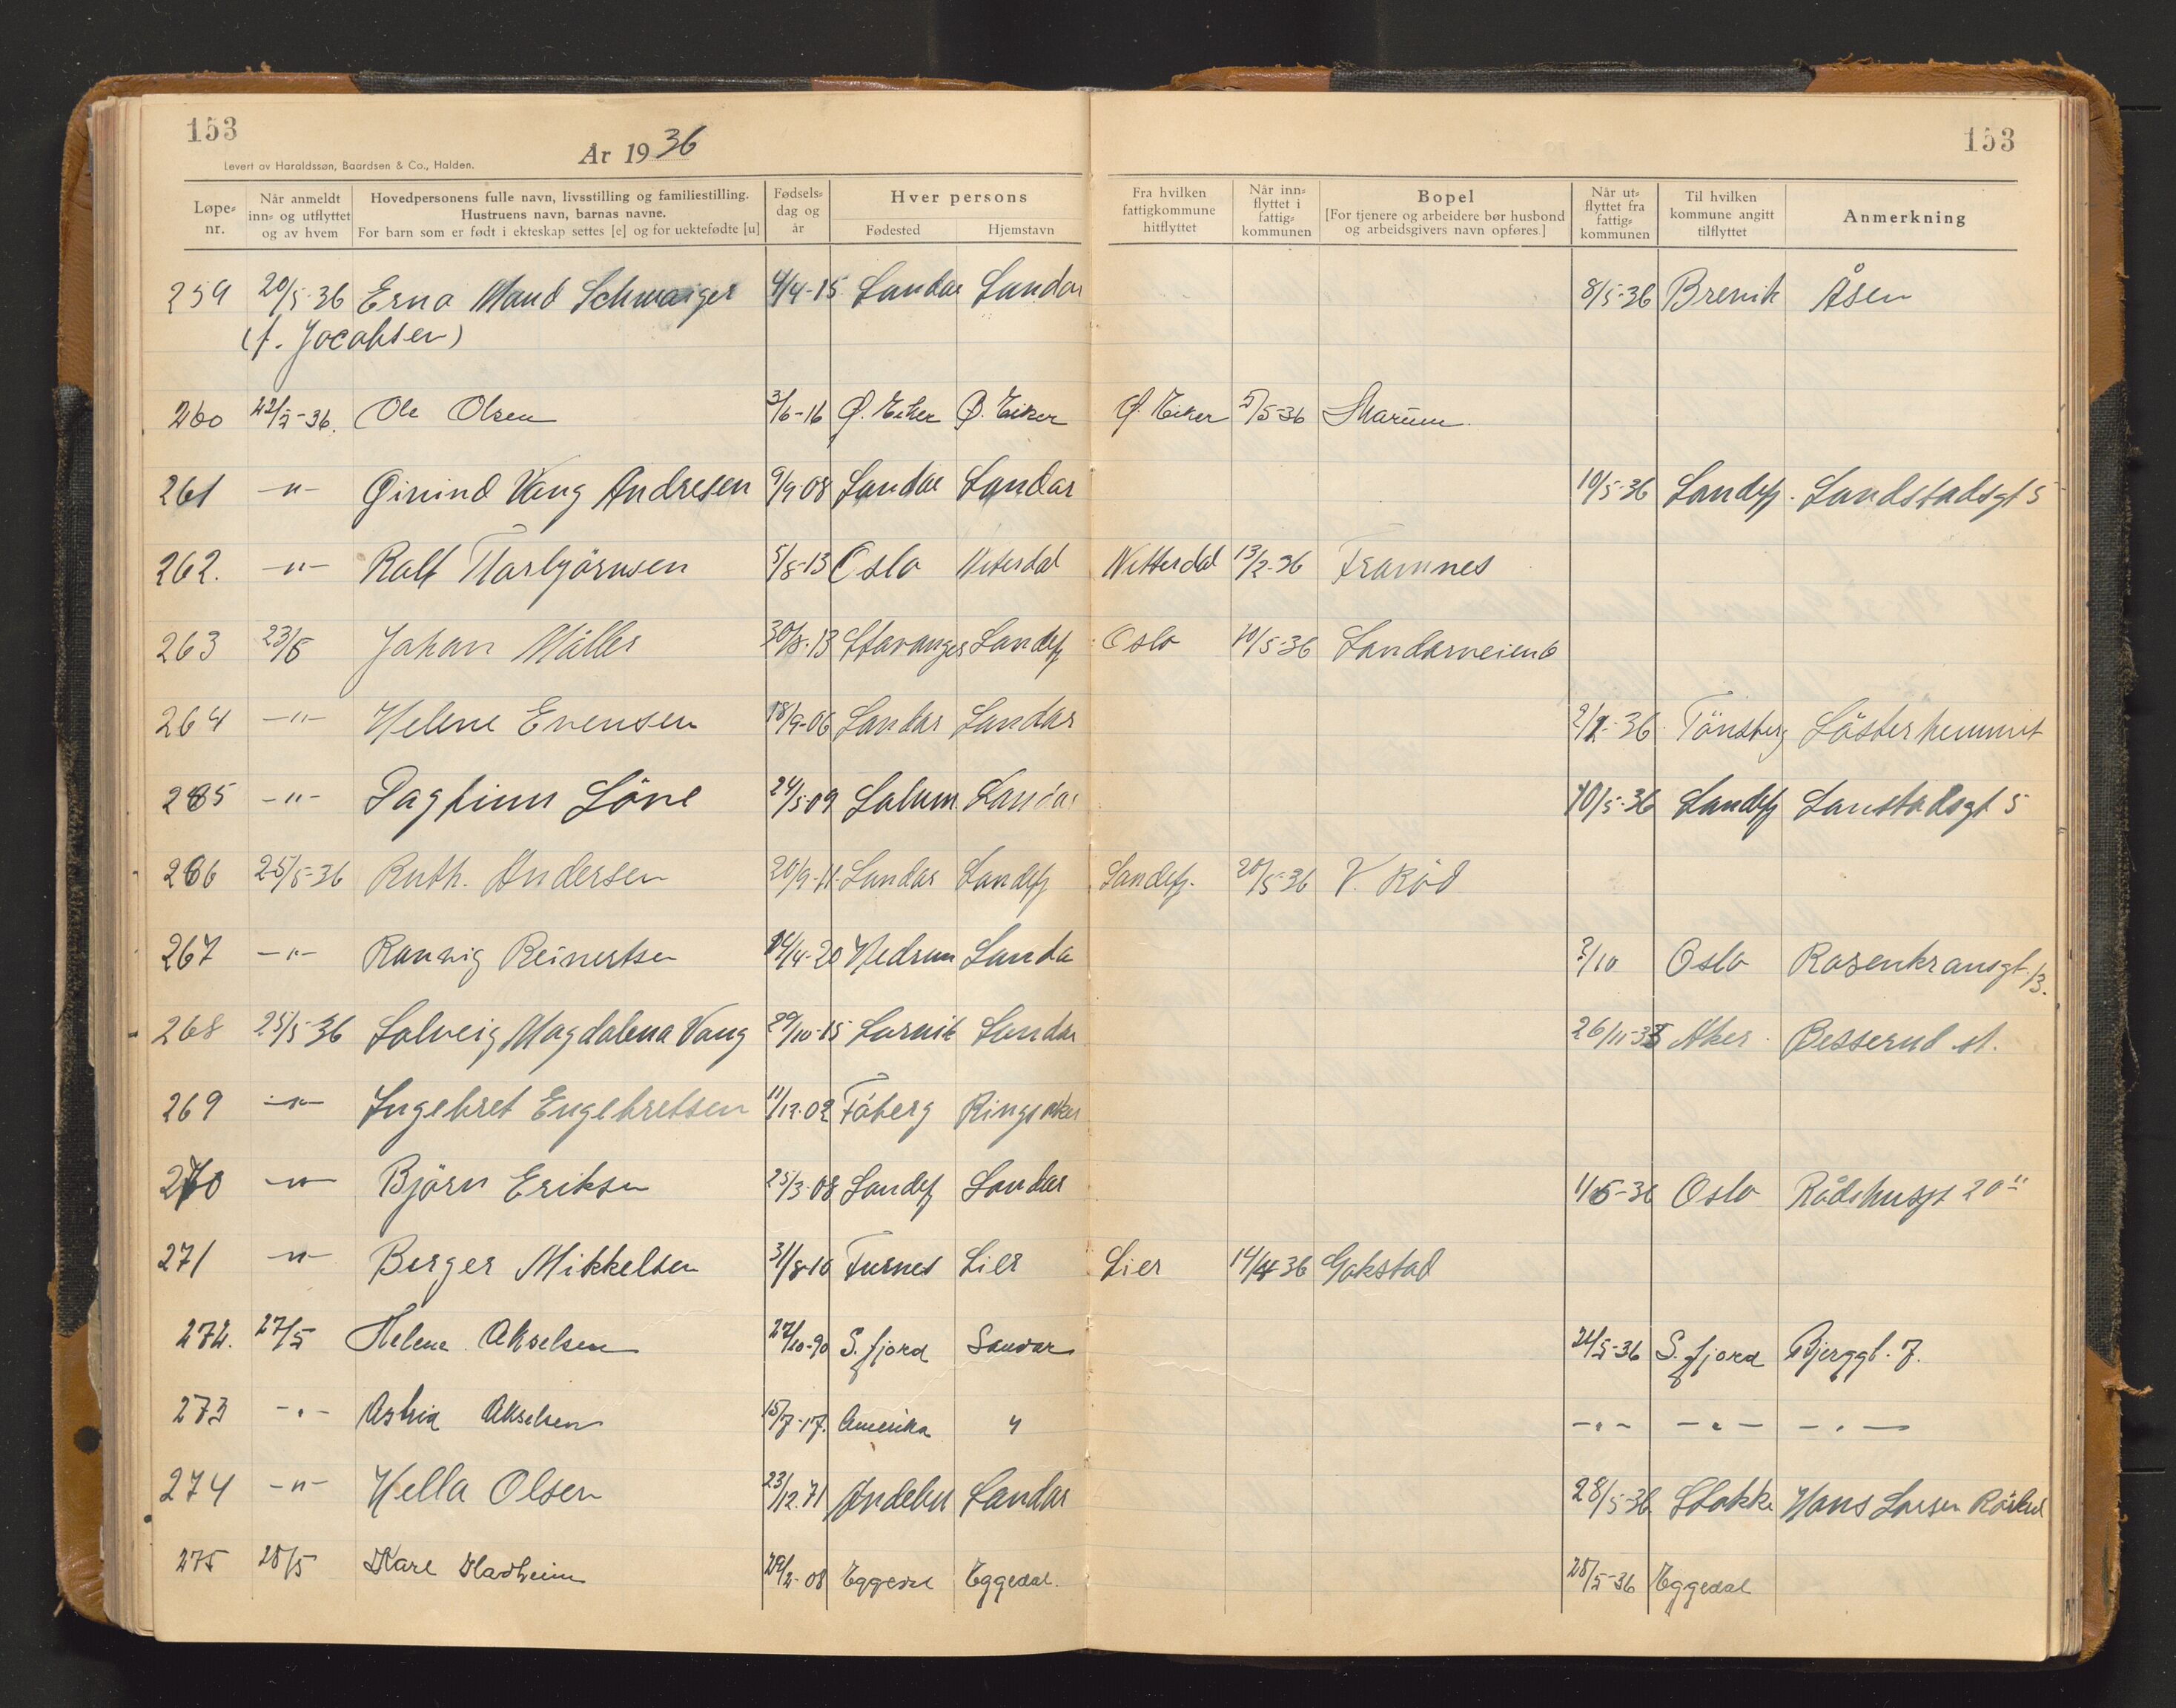 153
153
År 19 36
Levert av Haraldssøn, Baardsen & Co., Halden.
Løpe-nr. Når anmeldt inn- og utflyttet og av hvem Hovedpersonens fulle navn, livsstilling og familiestilling. Hustruens navn, barnas navne. For barn som er født i ekteskap settes [e] og for uektefødte [u] Fødsels-dag og år Hver persons Fødested Hjemstavn Fra hvilken fattigkommune hitflyttet Når inn-flyttet i fattig-kommunen Bopel [For tjenere og arbeidere bør husbond og arbeidsgivers navn opføres.] Når ut-flyttet fra fattig-kommunen Til hvilken kommune angitt tilflyttet Anmerkning
259 20/5-36 Erna Maud Schwaiger 4/4-15 Sandar Sandar 8/5-36 Brevik Åsen
(f. Jacobsen)
260 22/5-36. Ole Olsen 3/6-16 Ø. Eiker Ø. Eiker Ø. Eiker 5/5-36
261 -"- Øivind Vang Andresen 9/9-08 Sandar Sandar 10/5-36 Sandefj. Landstadsgt 5
262. -"- Ralf Thorbjørnsen 5/8-13 Oslo Nitterdal Nitterdal 13/2-36 Framnes
263 23/5 Johan Müller 30/8-13 Stavanger Sandefj Oslo 10/5-36 Sandarveien 6
264 -"- Helene Evensen 18/9-06 Sandar Sandar Tönsberg Søsterhemmet
265 -"- Dagfinn Löve 24/5-09 Solum Sandar 10/5-36 Sandefj Lanstadsgt 5
266 25/5-36 Ruth. Andersen 20/9-11 Sandar Sandefj Sandefj. 20/5-36 V. Röd
267 -"- Ranvig Reinertsen 14/4-20 Hedrum Sanda 2/10 Oslo Rosenkransgt. 13.
268 25/5 36 Solveig Magdalena Vang 29/10-15 Larvik Sandar 26/11-35 Aker Besserud st.
269 -"- Ingebret Engebretsen 11/12-02 Fåberg Ringsaker
270 -"- Björn Eriksen 25/3-08 Sandefj Sandar 1/5-36 Oslo Rådhusgt 20"
271 -"- Birger Mikkelsen 31/8-10 Furnes Lier Lier 14/4-36 Gokstad
272. 27/5 Helene Akselsen 27/10-90 S.fjord Sandar 24/5-36 S.fjord Bjerggt. 7.
273 -"- Astrid Akselsen 15/7-17. Amerika " -"- -"- -"-
274 -"- Hella Olsen 23/12.71 Andebu Sandar 28/5-36 Stokke Hans Larsen
275 28/5 Kare Hadheim 29/2-08 Eggedal Eggedal. 28/5-36 Eggedal